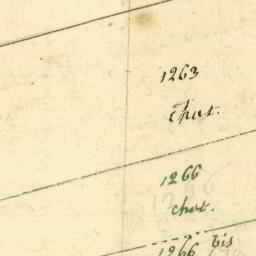 1263
Chat.
1266
chat.
1266 bis